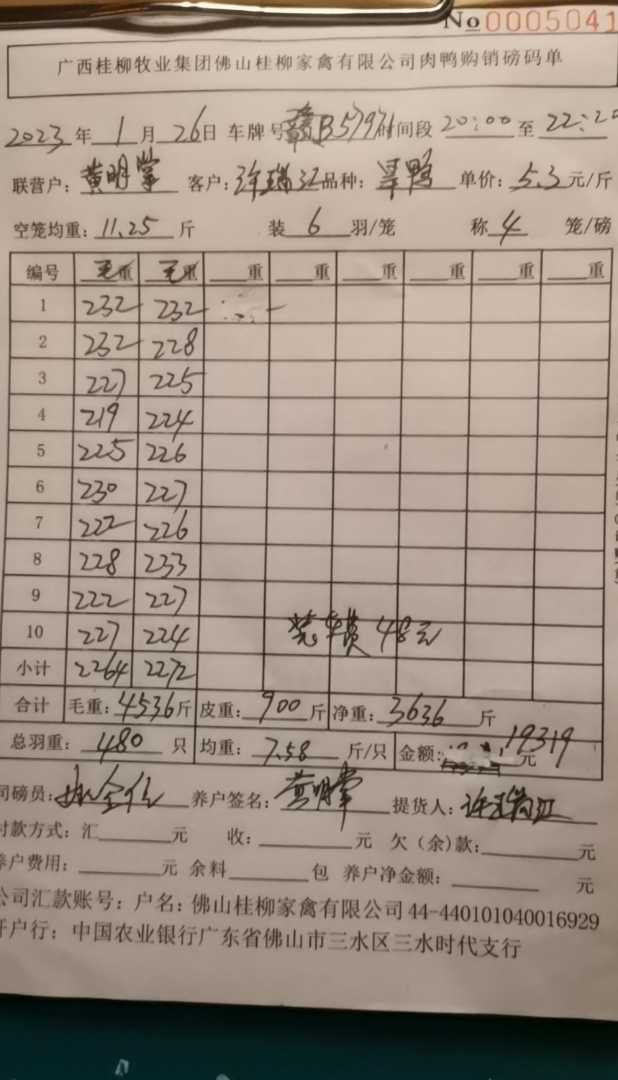 No 0005041
广西桂柳牧业集团佛山桂柳家禽有限公司肉鸭购销磅码单
2023 年 1 月 26 日 车牌号 赣B57971 时间段 20:00 至 22:20
联营户: 黄明掌 客户: 许瑞江 品种: 旱鸭 单价: 5.3 元/斤
空笼均重: 11.25 斤 装 6 羽/笼 称 4 笼/磅
编号 毛重 毛重 重 重 重 重 重 重
1 232 232
2 232 228
3 227 225
4 219 224
5 225 226
6 230 227
7 222 226
8 228 233
9 222 227
10 227 224 装车费 48元
小计 2264 2272
合计 毛重: 4536 斤 皮重: 900 斤 净重: 3636 斤
总羽重: 480 只 均重: 7.58 斤/只 金额: 19319 元
司磅员: 养户签名: 黄明掌 提货人: 许瑞江
付款方式: 汇 元 收: 元 欠(余)款: 元
养户费用: 元 余料 包 养户净金额: 元
公司汇款账号: 户名: 佛山桂柳家禽有限公司 44-440101040016929
开户行: 中国农业银行广东省佛山市三水区三水时代支行